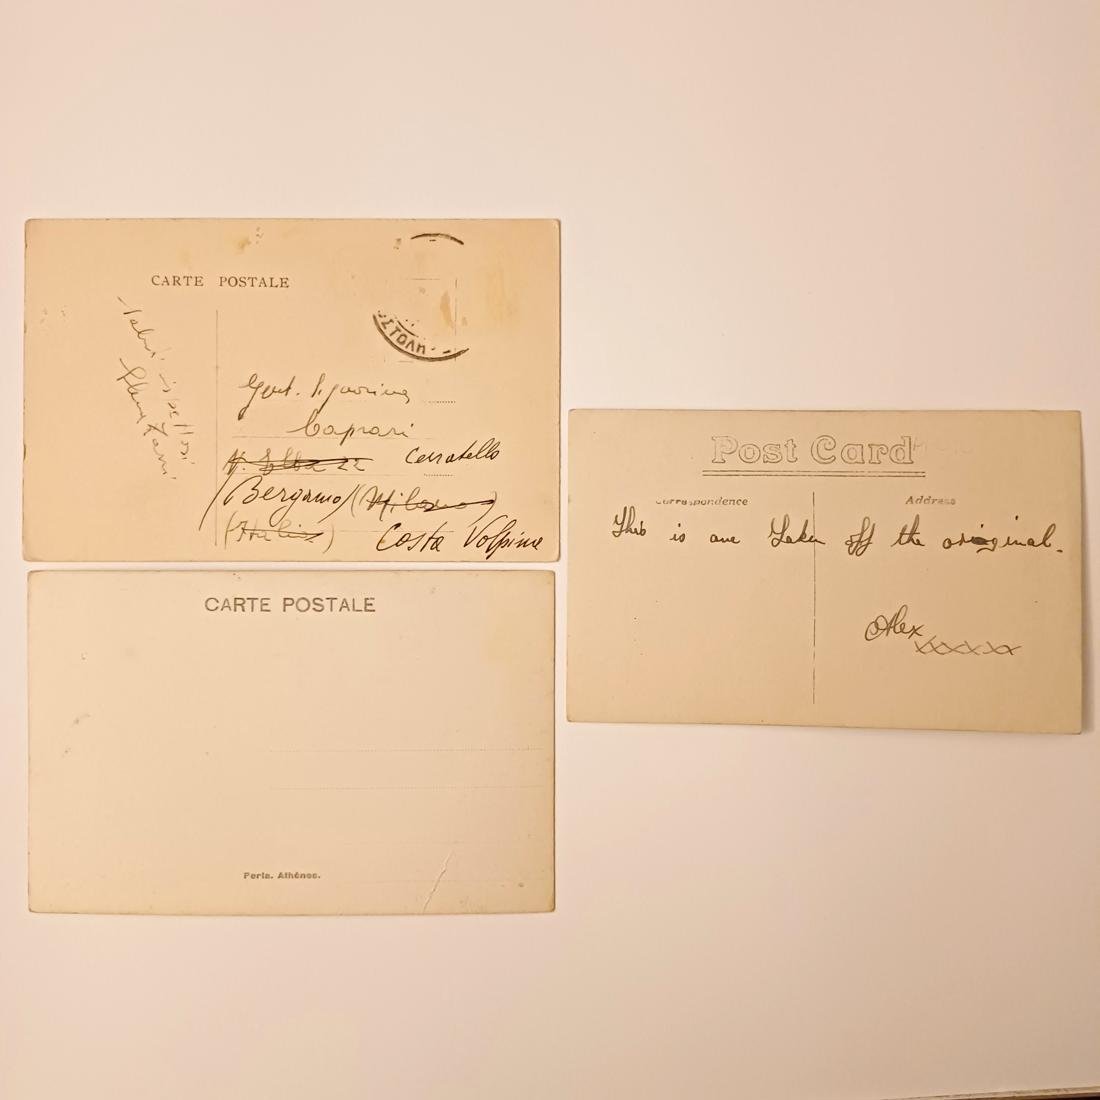 CARTE POSTALE
ΣΤΟΛΗ
Gent. Signorina
Caprari
V. Elba 22 Cerratello
(Bergamo) (Milano)
(Italia) Costa Volpino
CARTE POSTALE
Perla. Athénes.
Post Card
Correspondence Address
This is one Taken off the original.
Alex
xxxxxx